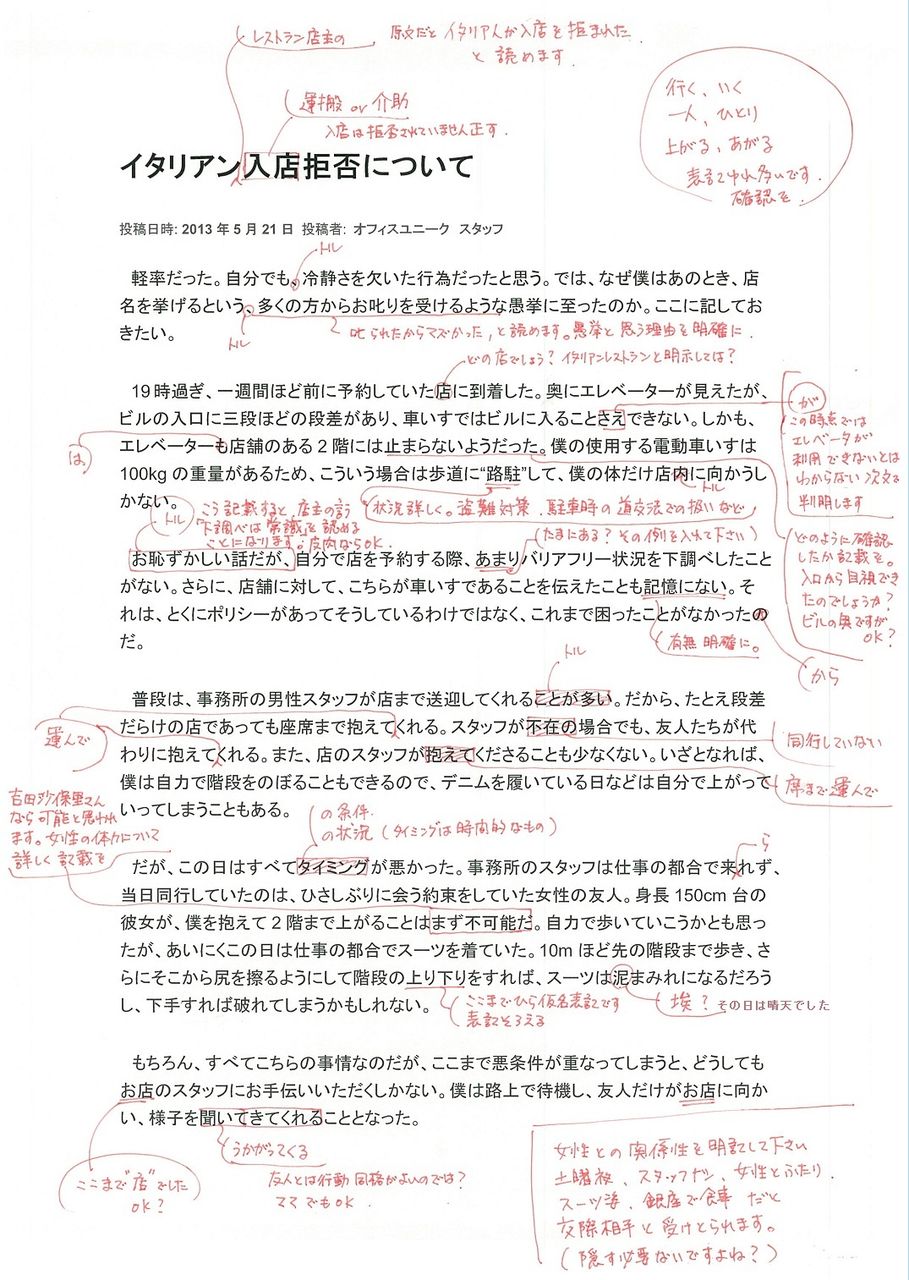 レストラン店主の 原文だとイタリア人が入店を拒まれた
と読めます.
運搬 or 介助
入店は拒否されていません正す.
行く、いく
一人、ひとり
上がる、あがる
表記ゆれ多いです.
確認を.
イタリアン入店拒否について
投稿日時: 2013 年 5 月 21 日 投稿者: オフィスユニーク スタッフ
トル
軽率だった。自分でも、冷静さを欠いた行為だったと思う。では、なぜ僕はあのとき、店
名を挙げるという、多くの方からお叱りを受けるような愚挙に至ったのか。ここに記してお
きたい。
トル
叱られたからマズかった,と読めます。愚挙と思う理由を明確に.
どの店でしょう? イタリアンレストランと明示しては?
19 時過ぎ、一週間ほど前に予約していた店に到着した。奥にエレベーターが見えたが、
ビルの入口に三段ほどの段差があり、車いすではビルに入ることさえできない。しかも、
エレベーターも店舗のある 2 階には止まらないようだった。僕の使用する電動車いすは
100kg の重量があるため、こういう場合は歩道に“路駐”して、僕の体だけ店内に向かうし
かない。
は
が
この時点では
エレベータが
利用できないとは
わからない 次文で
判明します
トル
トル
こう記載すると、店主の言う
「下調べは常識」を認める
ことになります。皮肉ならOK.
状況詳しく。盗難対策.駐車時の道交法での扱いなど
(たまにある? その例を入れて下さい)
どのように確認
したか記載を。
入口から目視でき
たのでしょうか?
ビルの奥ですが
OK?
お恥ずかしい話だが、自分で店を予約する際、あまりバリアフリー状況を下調べしたこと
がない。さらに、店舗に対して、こちらが車いすであることを伝えたことも記憶にない。そ
れは、とくにポリシーがあってそうしているわけではなく、これまで困ったことがなかったの
だ。
有無 明確に。
から
トル
普段は、事務所の男性スタッフが店まで送迎してくれることが多い。だから、たとえ段差
だらけの店であっても座席まで抱えてくれる。スタッフが不在の場合でも、友人たちが代
わりに抱えてくれる。また、店のスタッフが抱えてくださることも少なくない。いざとなれば、
僕は自力で階段をのぼることもできるので、デニムを履いている日などは自分で上がって
いってしまうこともある。
運んで
同行していない
席まで運んで
吉田沙保里さん
なら可能と思われ
ます。女性の体力について
詳しく記載を
の条件.
の状況 (タイミングは時間的なもの)
ら
だが、この日はすべてタイミングが悪かった。事務所のスタッフは仕事の都合で来れず、
当日同行していたのは、ひさしぶりに会う約束をしていた女性の友人。身長 150cm 台の
彼女が、僕を抱えて 2 階まで上がることはまず不可能だ。自力で歩いていこうかとも思っ
たが、あいにくこの日は仕事の都合でスーツを着ていた。10m ほど先の階段まで歩き、さ
らにそこから尻を擦るようにして階段の上り下りをすれば、スーツは泥まみれになるだろう
し、下手すれば破れてしまうかもしれない。
ここまでひら仮名表記です
表記そろえる
埃? その日は晴天でした
もちろん、すべてこちらの事情なのだが、ここまで悪条件が重なってしまうと、どうしても
お店のスタッフにお手伝いいただくしかない。僕は路上で待機し、友人だけがお店に向か
い、様子を聞いてきてくれることとなった。
うかがってくる
ここまで"店"でした
OK?
友人とは行動 同格がよいのでは?
ママでもOK.
女性との関係性を明記して下さい
土曜夜、スタッフなし、女性とふたり.
スーツ姿、銀座で食事 だと
交際相手と受けとられます。
(隠す必要ないですよね?)